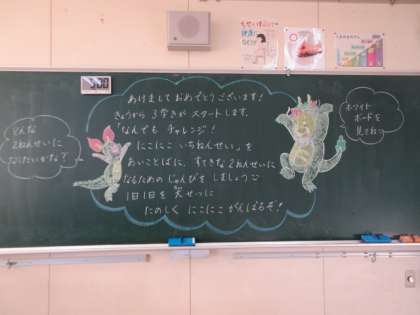 あけまして おめでとうございます!
きょうから 3学きが スタートします。
「なんでも チャレンジ!
にこにこ いちねんせい」を
あいことばに、すてきな2ねんせいに
なるための じゅんびを しましょう
1日1日を 大せつに
たのしく にこにこ がんばるぞ!
どんな
2ねんせいに
なりたいかな?
ホワイト
ボードを
見てね